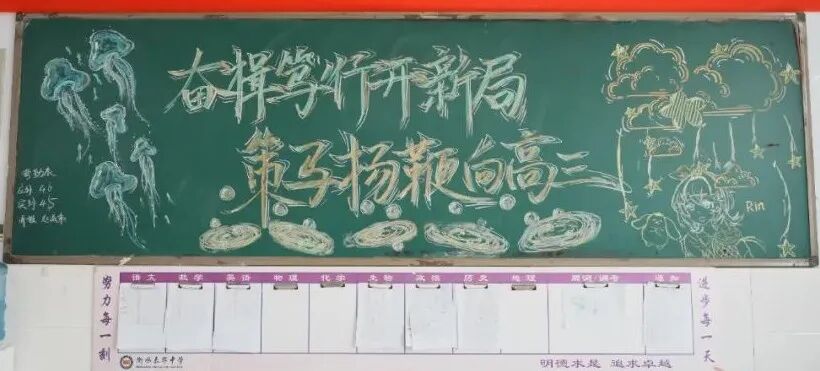 奋楫笃行开新局
策马扬鞭向高二
应到 46
实到 45
Rin
努力每一刻
语文 数学 英语 物理 化学 生物 政治 历史 地理 周测/调考 通知
进步每一天
明德求是 追求卓越